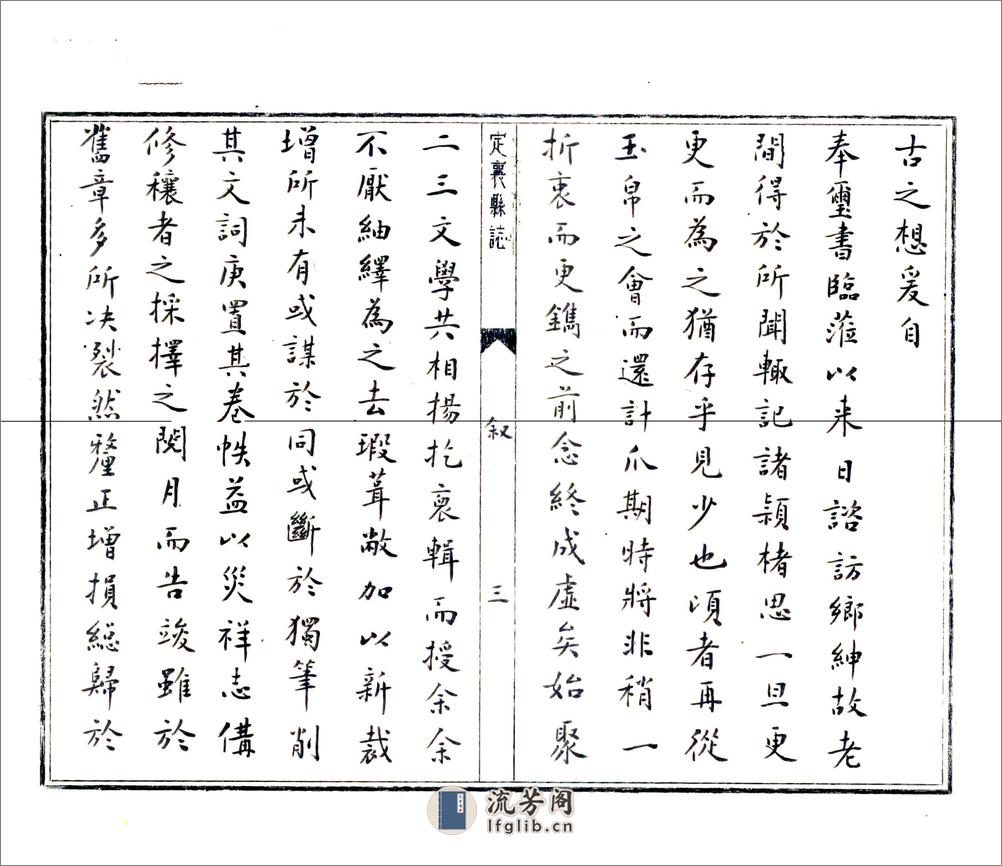 古之想爰自
奉璽書臨蒞以来日諮訪鄉紳故老
間得於所聞輙記諸穎楮思一旦更
更而為之猶存乎見少也頃者再從
玉帛之會而還計爪期時將非稍一
折衷而更鐫之前念終成虛矣始聚
定襄縣誌
叙
三
二三文學共相揚扢裒輯而授余余
不厭紬繹為之去瑕葺敝加以新裁
增所未有或謀於同或斷於獨筆削
其文詞庚置其卷帙益以災祥志備
修穰者之採擇之閱月而告竣雖於
舊章多所决裂然釐正增損總歸於
流芳阁
lfglib.cn